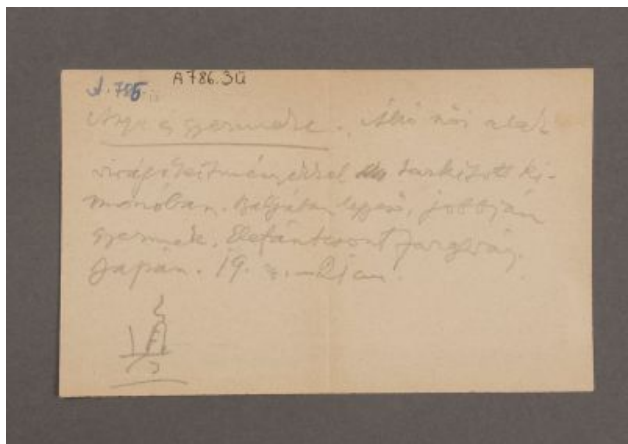 A.786 A786.3ü
Anya és gyermeke. Álló női alak
virágdíszítményekkel tarkított ki-
monóban. Baljában legyező, jobbján
gyermek. Elefántcsont faragvány.
Japán. 19. sz. 21 cm.